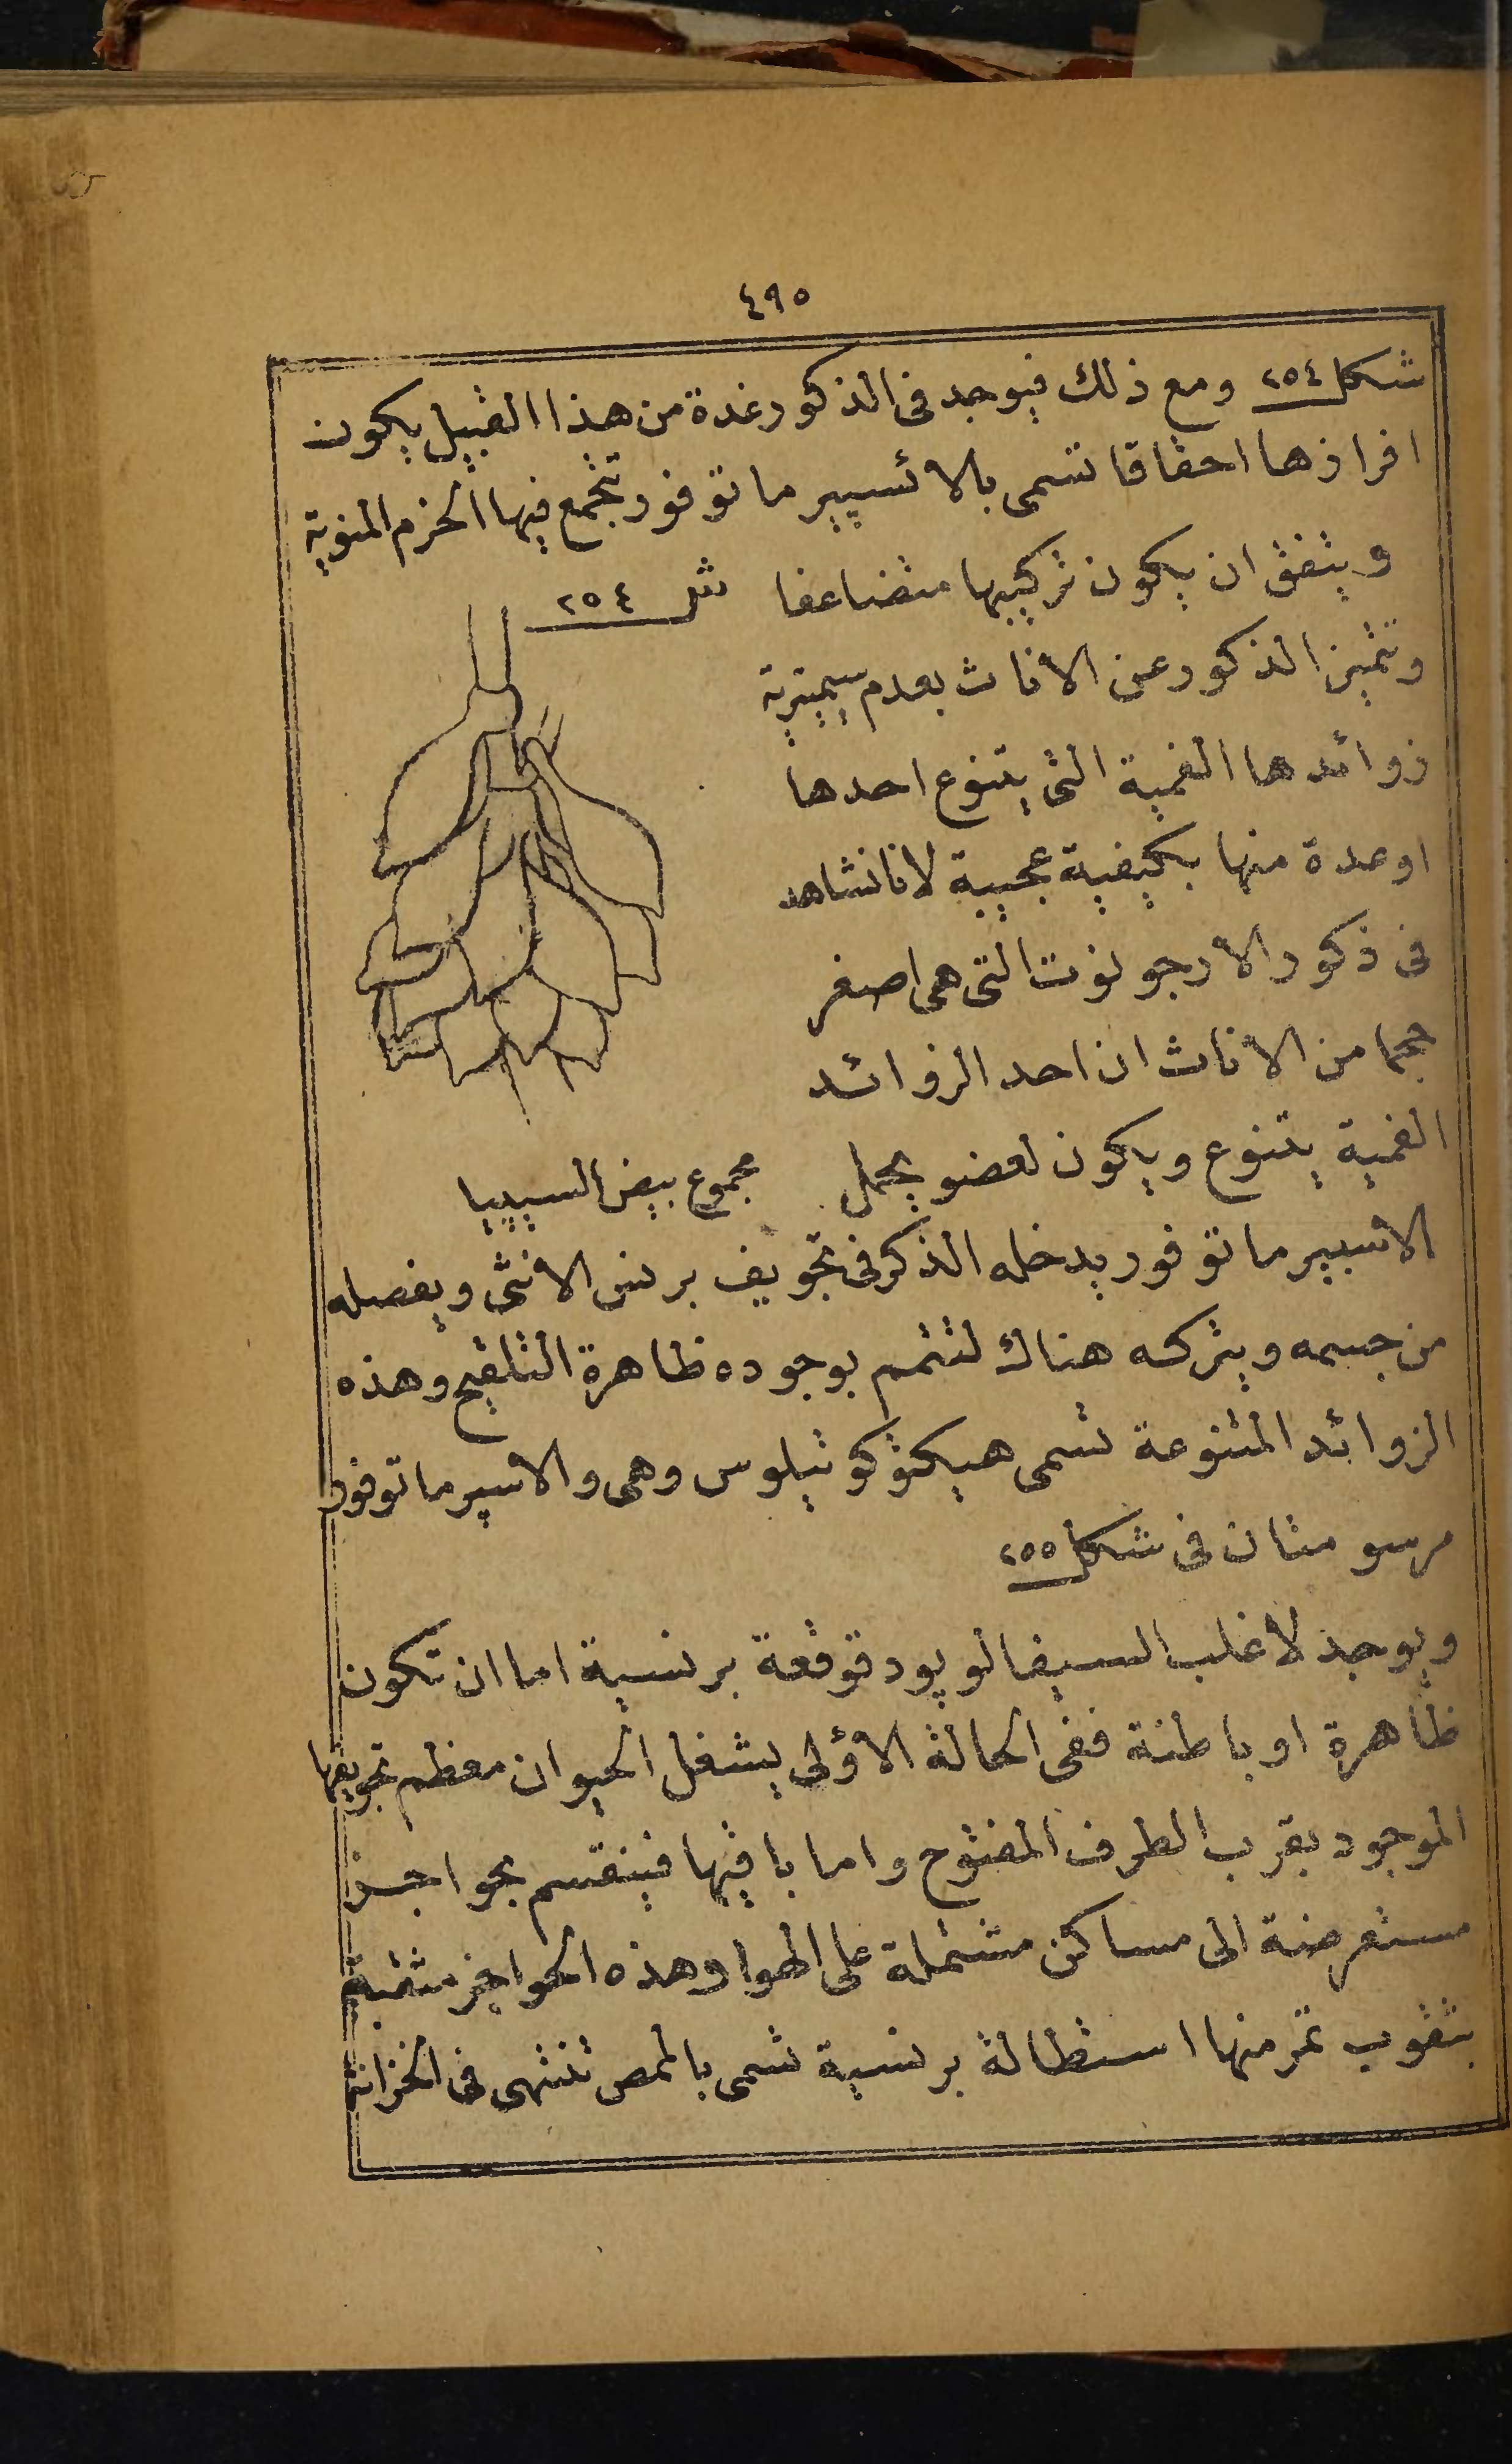 ٤٩٥
شكل ٢٥٤ ومع ذلك فيوجد فى الذكور غدة من هذا القبيل يكون
افرازها احقاقا تسمى بالاسپيرماتوفور تتجمع فيها الحزم المنوية
ويتفق ان يكون تركيبها متضاعفا
شكل ٢٥٤
وتتميز الذكور عن الاناث بعدم سيمترية
زوائدها الفمية التى يتنوع احدها
او عدة منها بكيفية عجيبة لانا نشاهد
فى ذكور الارجونوت التى هى اصغر
حجما من الاناث ان احد الزوائد
الفمية يتنوع ويكون لعضو يحمل
مجموع بيض السيپيا
الاسپيرماتوفور يدخله الذكر فى تجويف برنس الانثى ويفصله
من جسمه ويتركه هناك لتتم بوجوده ظاهرة التلقيح وهذه
الزوائد المتنوعة تسمى هيكتوكوتيلوس وهى والاسپيرماتوفور
مرسومتان فى شكل ٢٥٥
ويوجد لاغلب السيفالوپود قوقعة برنسية اما ان تكون
ظاهرة او باطنة ففى الحالة الاولى يشغل الحيوان معظم تجويفها
الموجود بقرب الطرف المفتوح واما باقيها فينقسم بحواجز
مستعرضة الى مساكن مشتملة على الهوا وهذه الحواجز مثقبة
بثقوب تمر منها استطالة برنسية تسمى بالممص تنتهى فى الخزانة